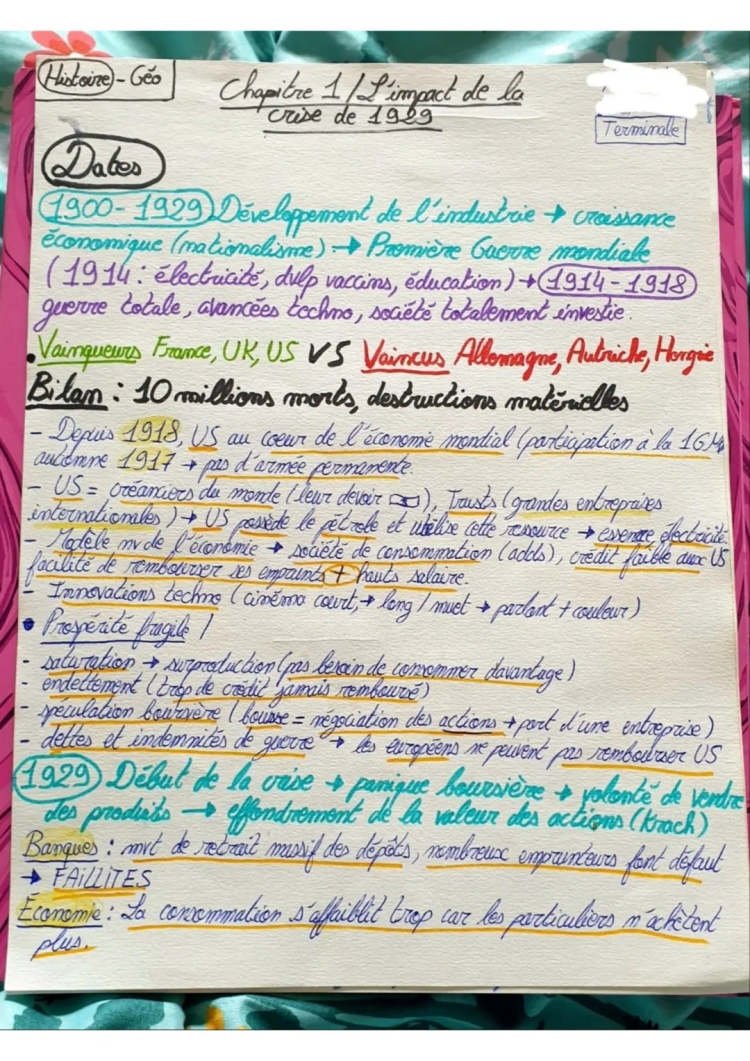 Histoire - Géo
Chapitre 1 / L'impact de la
crise de 1929
Terminale
Dates
1900-1929 Développement de l'industrie → croissance
économique (nationalisme) → Première Guerre mondiale
(1914 : électricité, dvlp vaccins, éducation) → 1914-1918
guerre totale, avancées techno, société totalement investie.
• Vainqueurs France, UK, US VS Vaincus Allemagne, Autriche, Hongrie
Bilan : 10 millions morts, destructions matérielles
- Depuis 1918, US au coeur de l'économie mondial (participation à la 1GM,
automne 1917 → pas d'armée permanente.
- US = créanciers du monde (leur devoir), Trusts (grandes entreprises
internationales) → US possède le pétrole et utilise cette ressource → essence, électricité.
- Modèle nv de l'économie → société de consommation (adds), crédit faible aux US
facilité de rembourser ses emprunts + hauts salaire.
- Innovations techno (cinéma court, → long / muet → parlant + couleur)
• Prospérité fragile /
- saturation → surproduction (pas besoin de consommer davantage)
- endettement (trop de crédit jamais remboursé)
- spéculation boursière (bousse = négociation des actions → part d'une entreprise)
- dettes et indemnités de guerre → les européens ne peuvent pas rembourser US
1929 Début de la crise → panique boursière → volonté de vendre
des produits → effondrement de la valeur des actions (Krach)
Banques : mvt de retrait massif des dépôts, nombreux emprunteurs font défaut
→ FAILLITES
Économie : La consommation s'affaiblit trop car les particuliers n'achètent
plus.